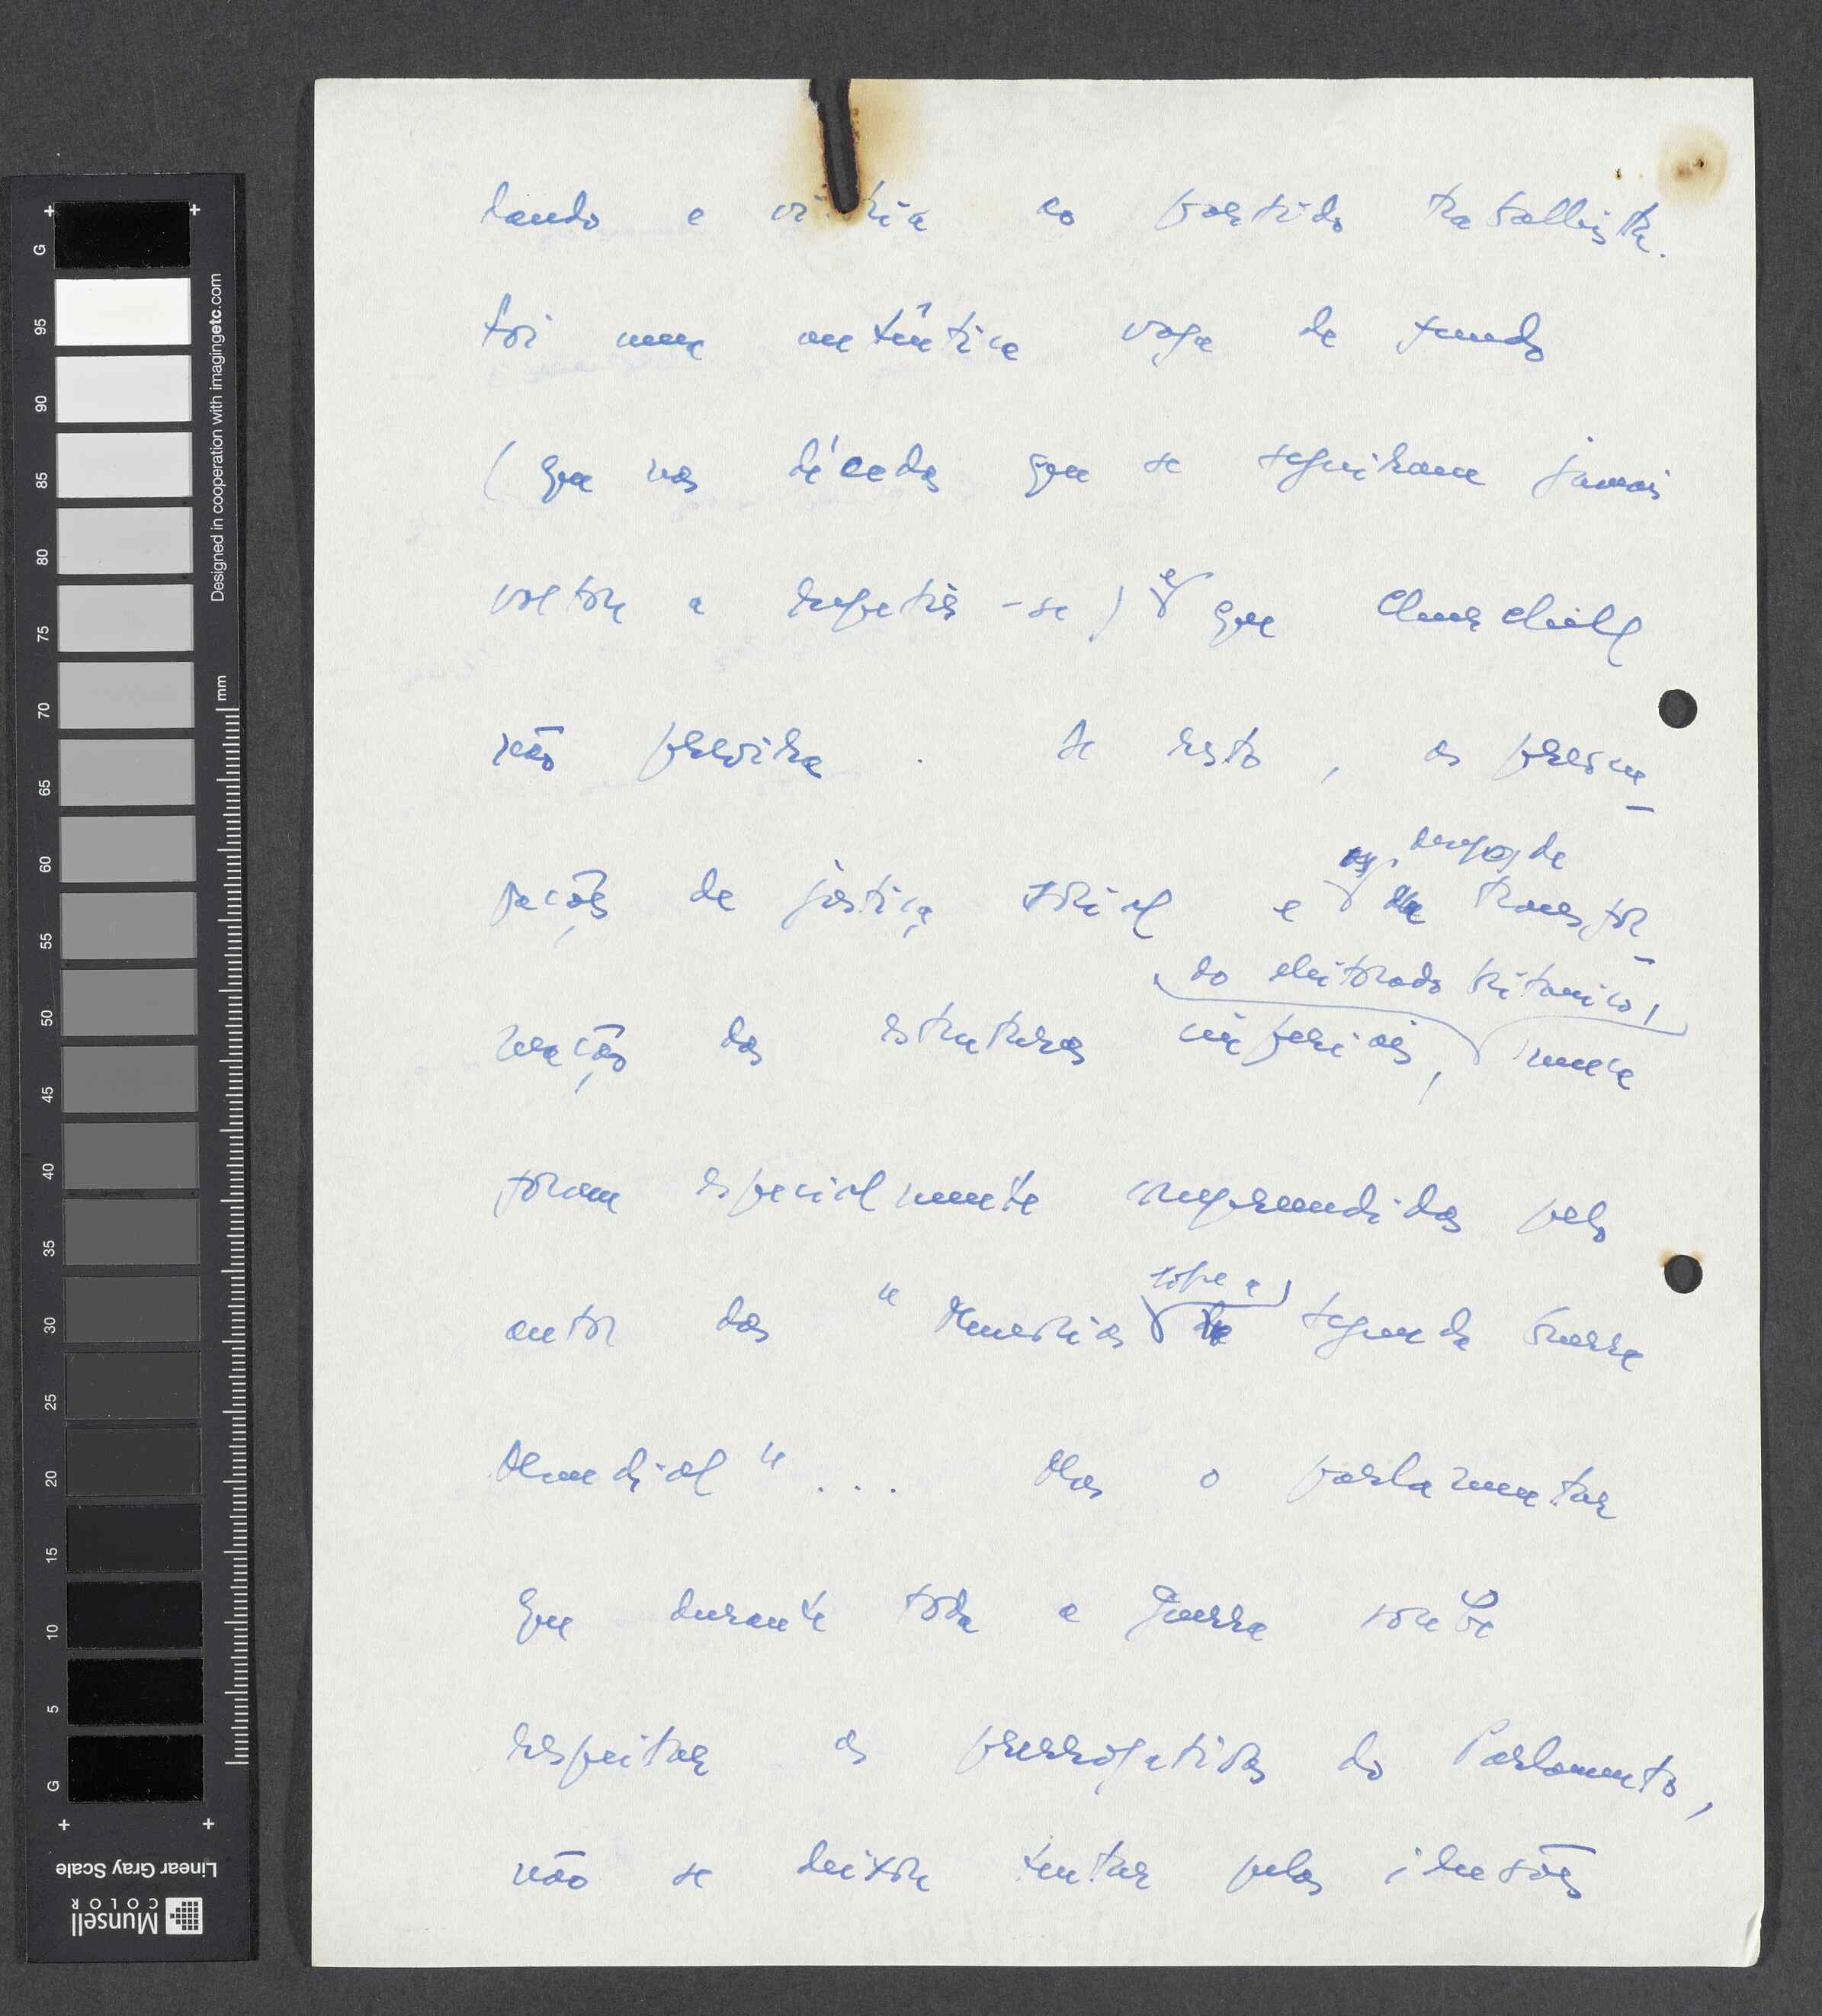 dando a vitória ao partido trabalhista.
Foi uma autêntica vaga de fundo
(que nas décadas que se seguiram jamais
voltou a repetir-se) e que Churchill
não previra. De resto, as preocu-
os desejos de
pações de justiça social e transfor-
do eleitorado britanico,
mação das estruturas imperiais, nunca
foram especialmente compreendidas pelo
sobre a
autor das "Memórias Segunda Guerra
Mundial"... Mas o parlamentar
que durante toda a guerra soube
respeitar as prerrogativas do Parlamento,
não se deixou tentar pelas ilusões
G
95
90
85
80
75
70
65
60
55
50
45
40
35
30
25
20
15
10
5
G
Designed in cooperation with imagingetc.com
mm
Linear Gray Scale
Munsell
COLOR